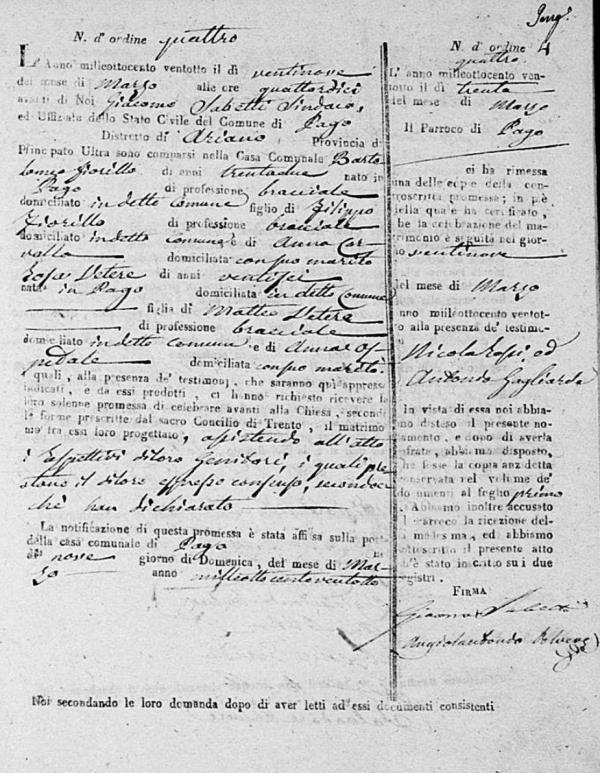 N. d'ordine quattro
L'Anno milleottocento ventotto il dì ventinove
del mese di Marzo alle ore quattordici
avanti di Noi Giacomo Sabetti Sindaco,
ed Uffiziale dello Stato Civile del Comune di Pago
Distretto di Ariano Provincia di
Principato Ultra sono comparsi nella Casa Comunale Barto
lomeo Fiorillo di anni trentadue nato in
Pago di professione bracciale
domiciliato in detto comune figlio di Filippo
Fiorillo di professione bracciale
domiciliato in detto comune e di Anna Cor
vallo domiciliata con suo marito
Rosa Vetere di anni ventisei
nata in Pago domiciliata in detto Comune
figlia di Matteo Vetere
di professione bracciale
domiciliato in detto comune e di Anna Os
pedale domiciliata con suo marito
quali, alla presenza de' testimonj, che saranno qui appresso
indicati, e da essi prodotti, ci hanno richiesto ricevere la
loro solenne promessa di celebrare avanti alla Chiesa, secondo
le forme prescritte dal sacro Concilio di Trento, il matrimo
nio tra essi loro progettato, assistendo all'atto
i rispettivi di loro Genitori, i quali pre
stano il di loro espresso consenso, secondo
chè han dichiarato
La notificazione di questa promessa è stata affissa sulla porta
della casa comunale di Pago ne
dì nove giorno di Domenica, del mese di Mar
zo anno milleottocentoventotto
Noi secondando le loro domanda dopo di aver letti ad essi documenti consistenti
N. d'ordine 4
quattro
L'anno milleottocento ven-
totto il dì trenta
del mese di Marzo
Il Parroco di Pago
ci ha rimessa
una delle copie della con-
troscritta promessa; in piè
della quale ha certificato,
che la celebrazione del ma-
trimonio è seguita nel gior-
no ventinove
del mese di Marzo
anno milleottocento ventot-
to alla presenza de' testimo-
nj Nicola Rossi, ed
Antonio Gagliarde
In vista di essa noi abbia-
mo disteso il presente no-
tamento, e dopo di averla
cifrata, abbiamo disposto,
che fosse la copia anzidetta
conservata nel volume de'
documenti al foglio primo
Abbiamo inoltre accusato
al Parroco la ricezione del-
la medesima, ed abbiamo
sottoscritto il presente atto
ch'è stato inscritto su i due
registri.
FIRMA